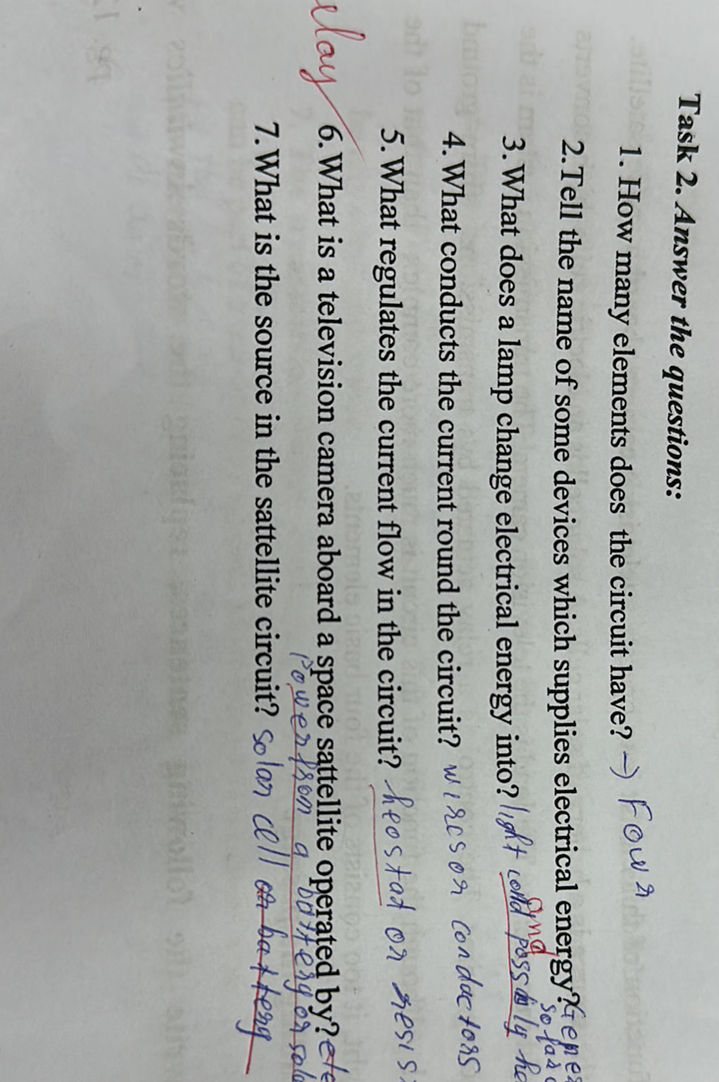 Task 2. Answer the questions:
1. How many elements does the circuit have? → Four
2. Tell the name of some devices which supplies electrical energy?
3. What does a lamp change electrical energy into? light and possibly
4. What conducts the current round the circuit? wires or conductors
5. What regulates the current flow in the circuit? heostat or
6. What is a television camera aboard a space sattellite operated by?
Power from a battery or
7. What is the source in the sattellite circuit? Solar cell or battery